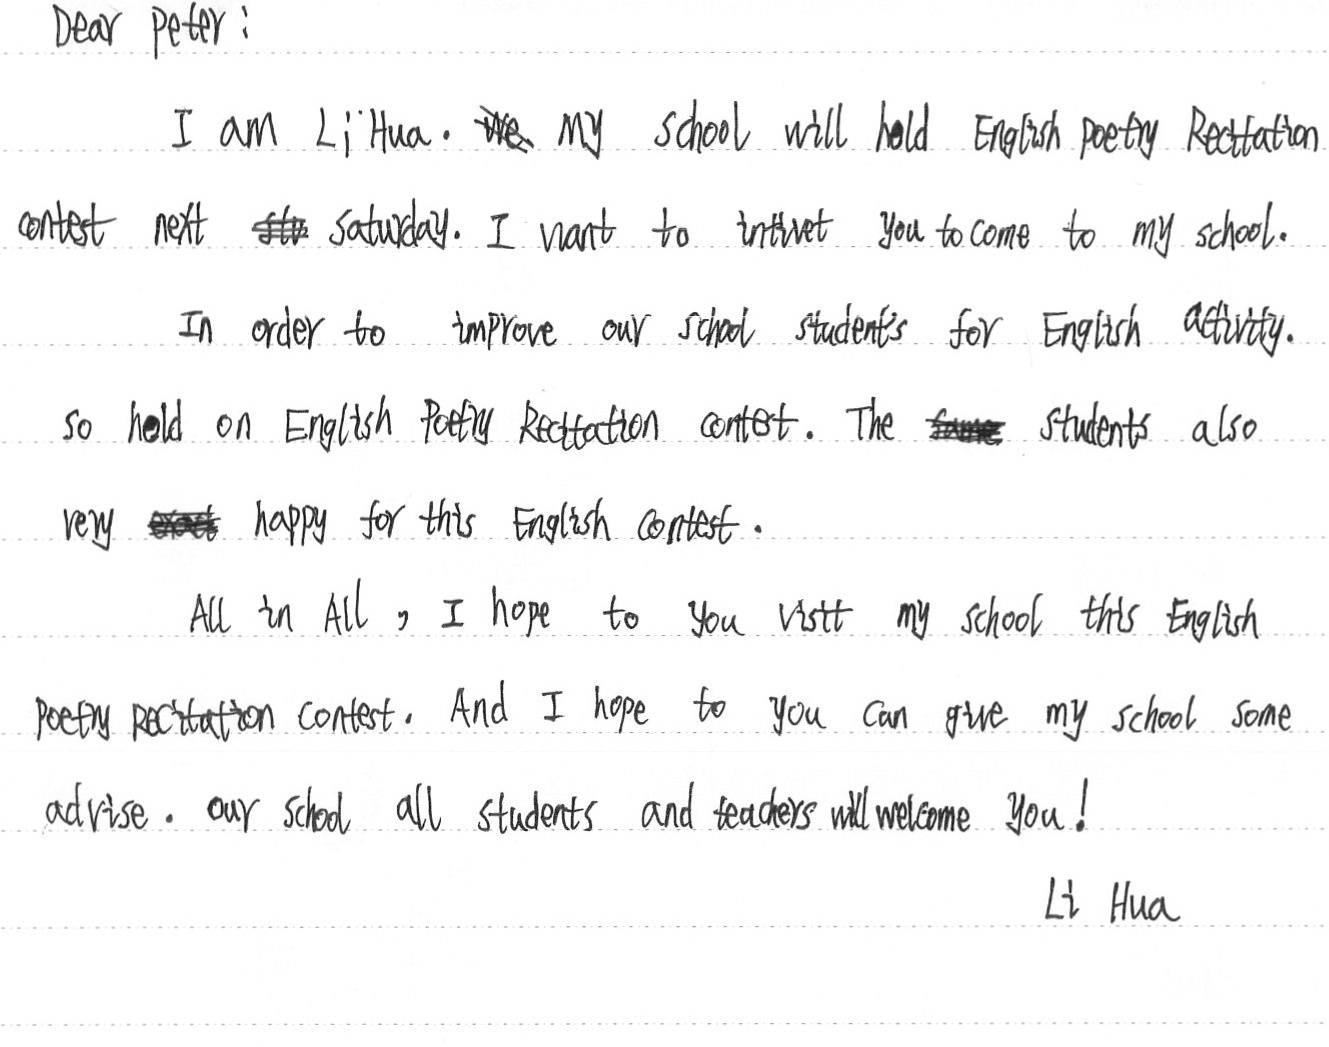 Dear Peter:
I am Li Hua. My school will hold English poetry Recitation
contest next saturday. I want to intivet you to come to my school.
In order to improve our school student's for English activity.
so hold on English Poetry Recitation contest. The students also
very happy for this English contest.
All in All, I hope to you visit my school this English
Poetry Recitation contest. And I hope to you can give my school some
advise. our school all students and teachers will welcome you!
Li Hua